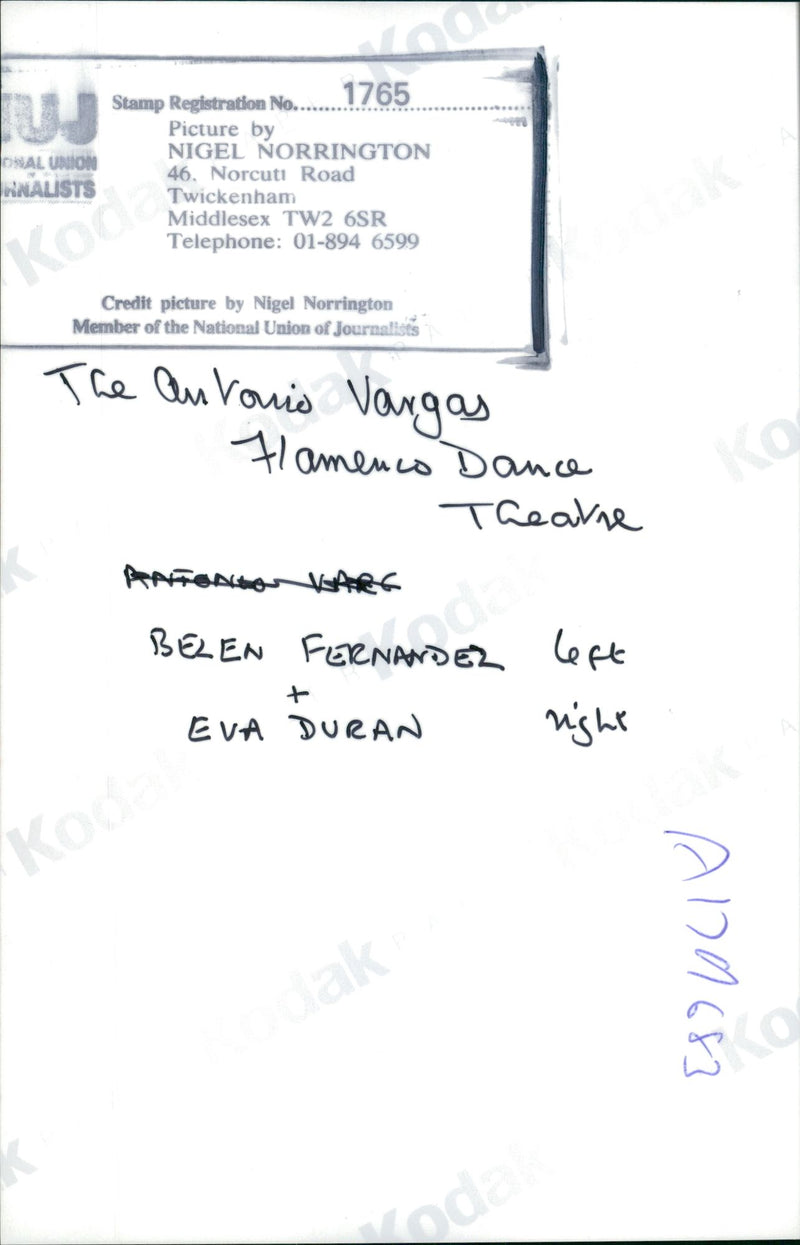 NUJ
ONAL UNION
RNALISTS
Stamp Registration No. 1765
Picture by
NIGEL NORRINGTON
46. Norcutt Road
Twickenham
Middlesex TW2 6SR
Telephone: 01-894 6599
Credit picture by Nigel Norrington
Member of the National Union of Journalists
The Antonio Vargas
Flamenco Dance
Theatre
ANTONIO VARG
BELEN FERNANDEZ left
+
EVA DURAN right
Kodak